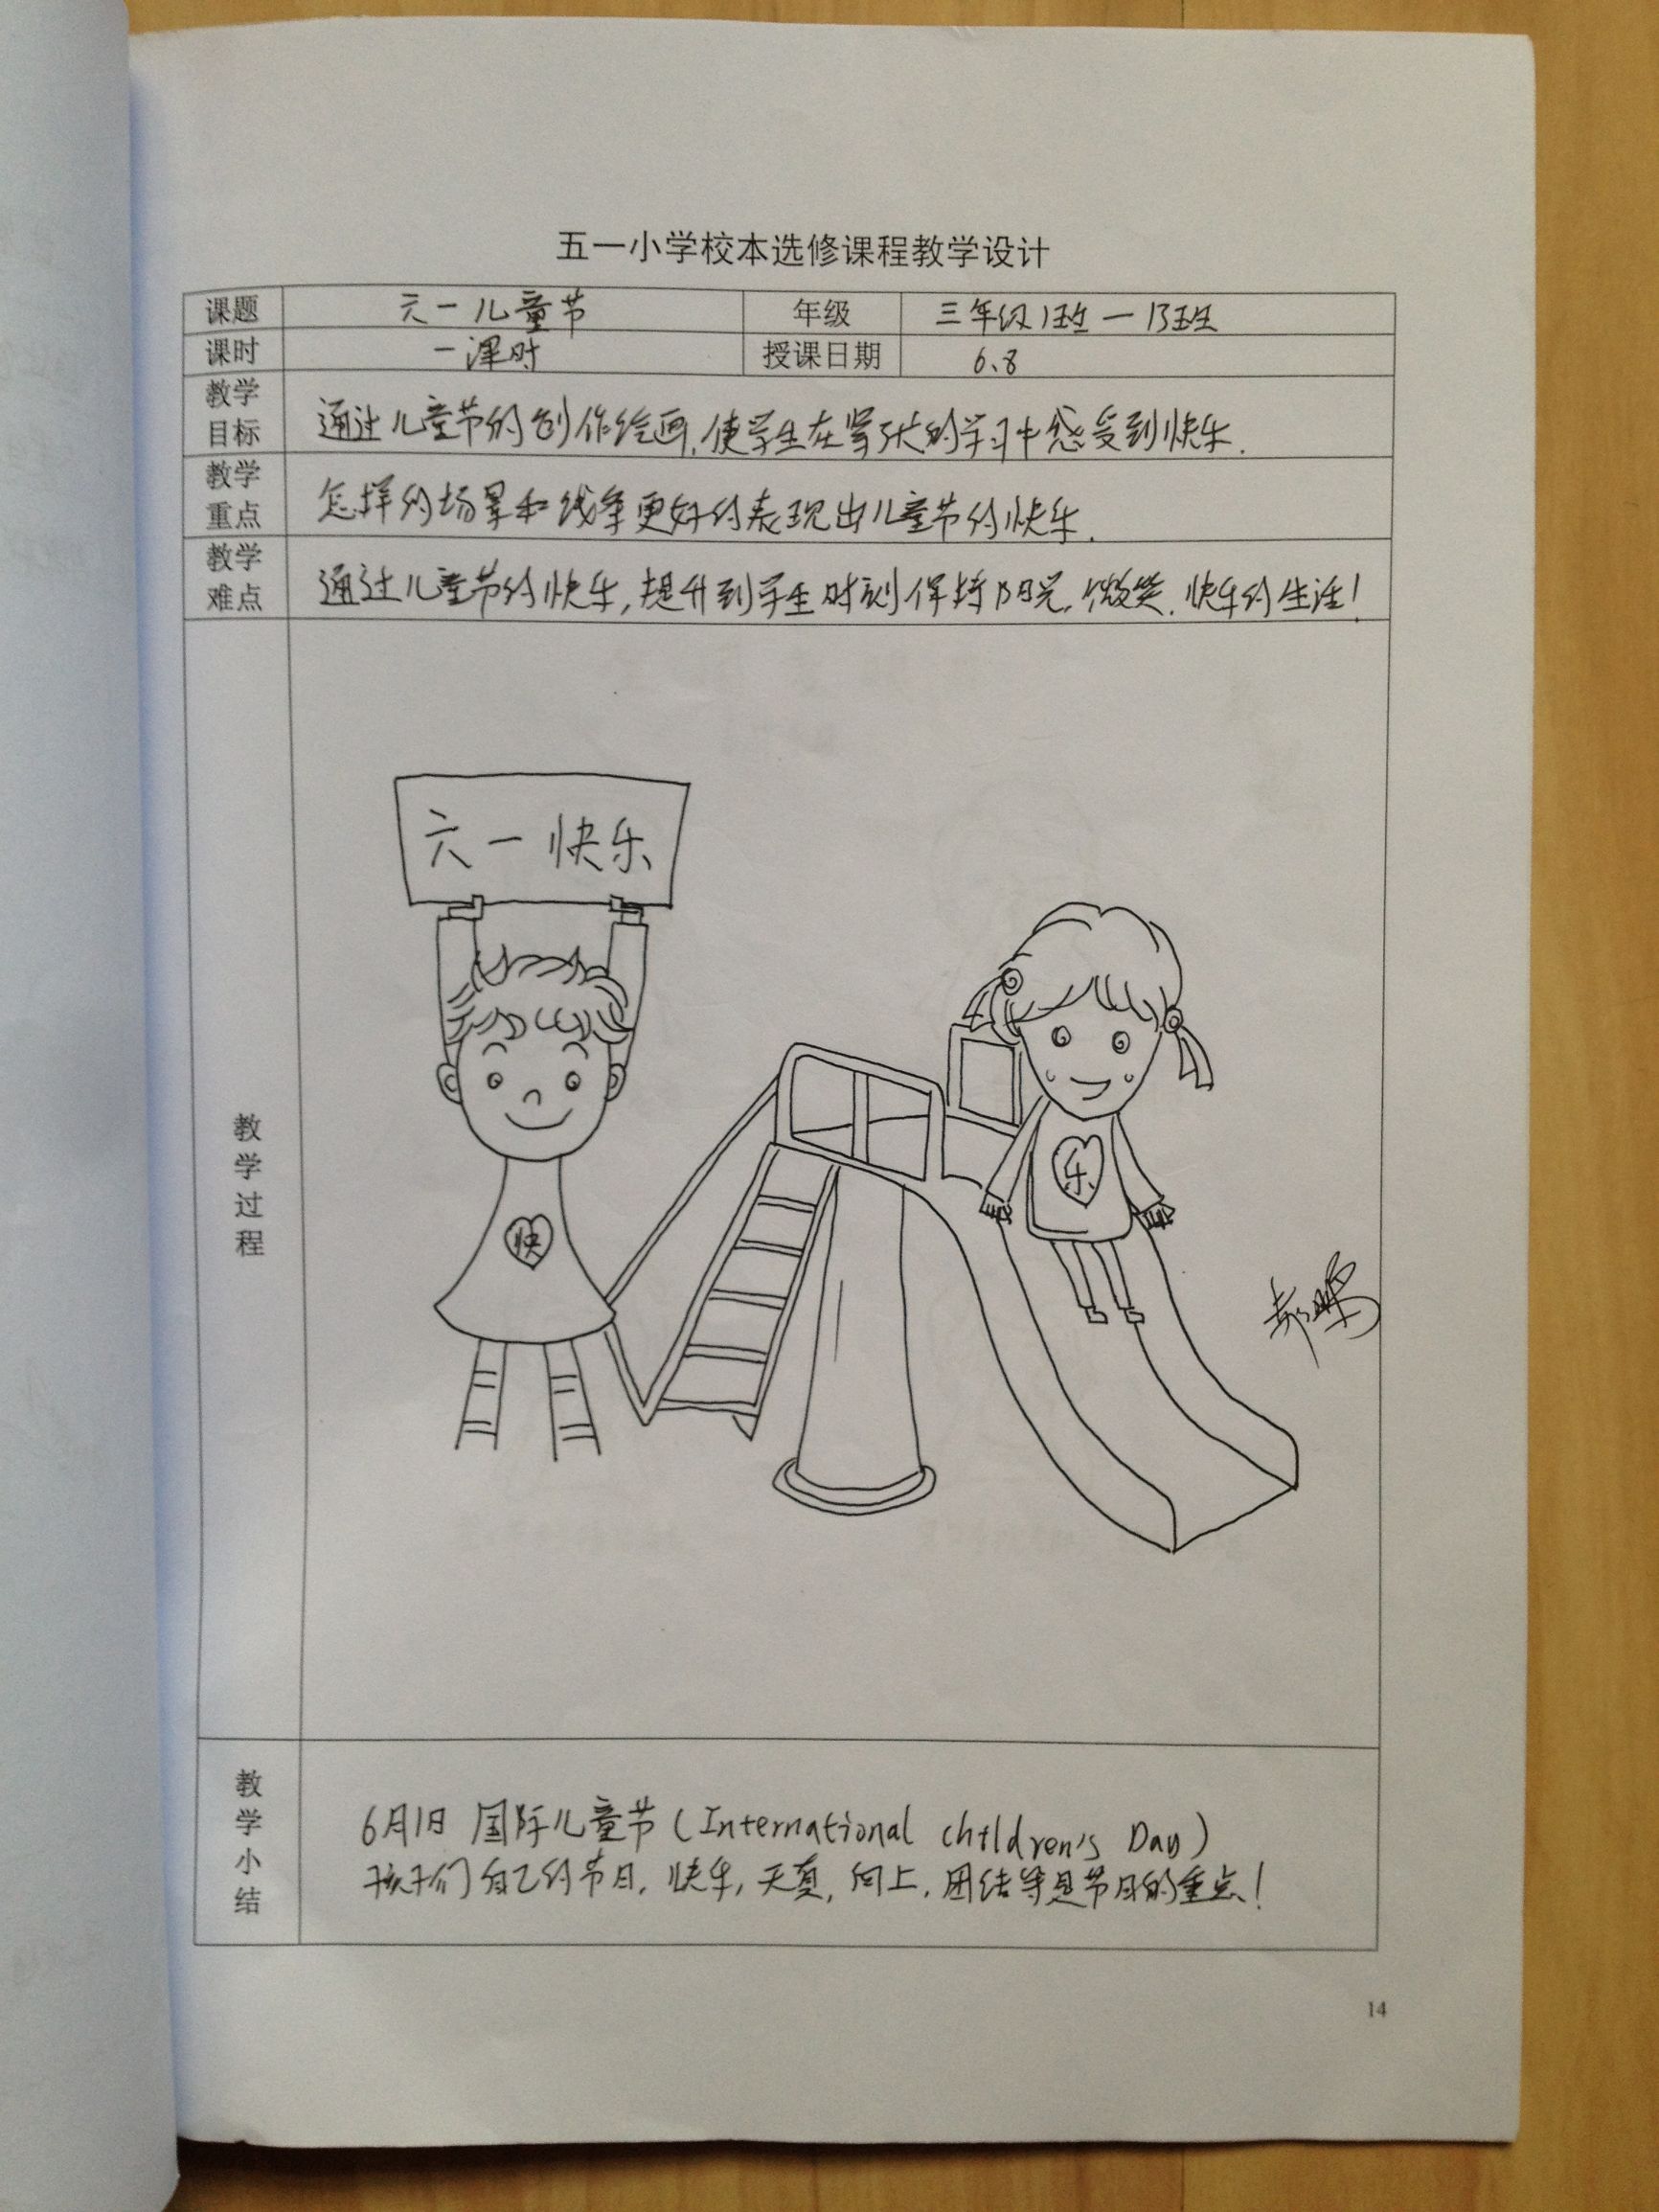 五一小学校本选修课程教学设计
课题 六一儿童节 年级 三年级1班一13班
课时 一课时 授课日期 6、8
教学目标 通过儿童节的创作绘画,使学生在紧张的学习中感受到快乐.
教学重点 怎样的场景和线条更好的表现出儿童节的快乐.
教学难点 通过儿童节的快乐,提升到学生时刻保持阳光、微笑、快乐的生活!
教学过程
六一快乐
快
乐
教学小结
6月1日 国际儿童节(International children's Day)
孩子们自己的节日,快乐,天真,向上,团结等是节日的重点!
14